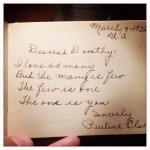 March 9-1926
U.A.
Dearest Dorothy:
I love so many
But the many is few
The few is one
The one is you
Sincerely
Pauline